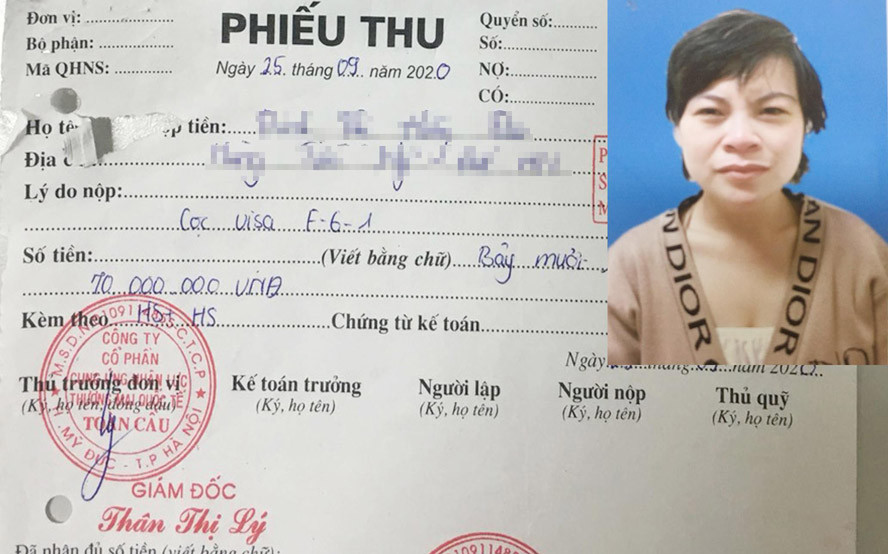 Đơn vị:
Bộ phận:
Mã QHNS:
PHIẾU THU
Ngày 25 tháng 09 năm 2020
Quyển số:
Số:
NỢ:
CÓ:
Họ tê
p tiền:
Địa c
Lý do nộp:
Cọc visa F-6-1
Số tiền: (Viết bằng chữ) Bảy mươi
70.000.000 VNĐ
Kèm theo HĐ+ HS Chứng từ kế toán
Ngày tháng 09 năm 2020
Thủ trưởng đơn vị
(Ký, họ tên, đóng dấu)
Kế toán trưởng
(Ký, họ tên)
Người lập
(Ký, họ tên)
Người nộp
(Ký, họ tên)
Thủ quỹ
(Ký, họ tên)
CÔNG TY
CỔ PHẦN
CUNG ỨNG NHÂN LỰC
THƯƠNG MẠI QUỐC TẾ
TOÀN CẦU
H. MỸ ĐỨC - T.P HÀ NỘI
GIÁM ĐỐC
Thân Thị Lý
Đã nhận đủ số tiền (viết bằng chữ):
DIOR
AN DIOR